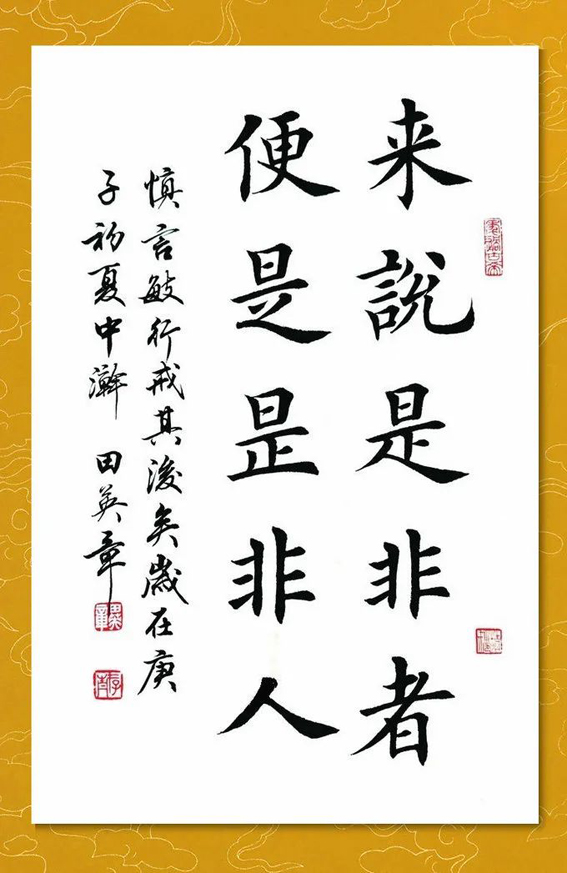 来說是非者
便是昰非人
慎言敏行戒其後矣歲在庚
子初夏中澣 田英章